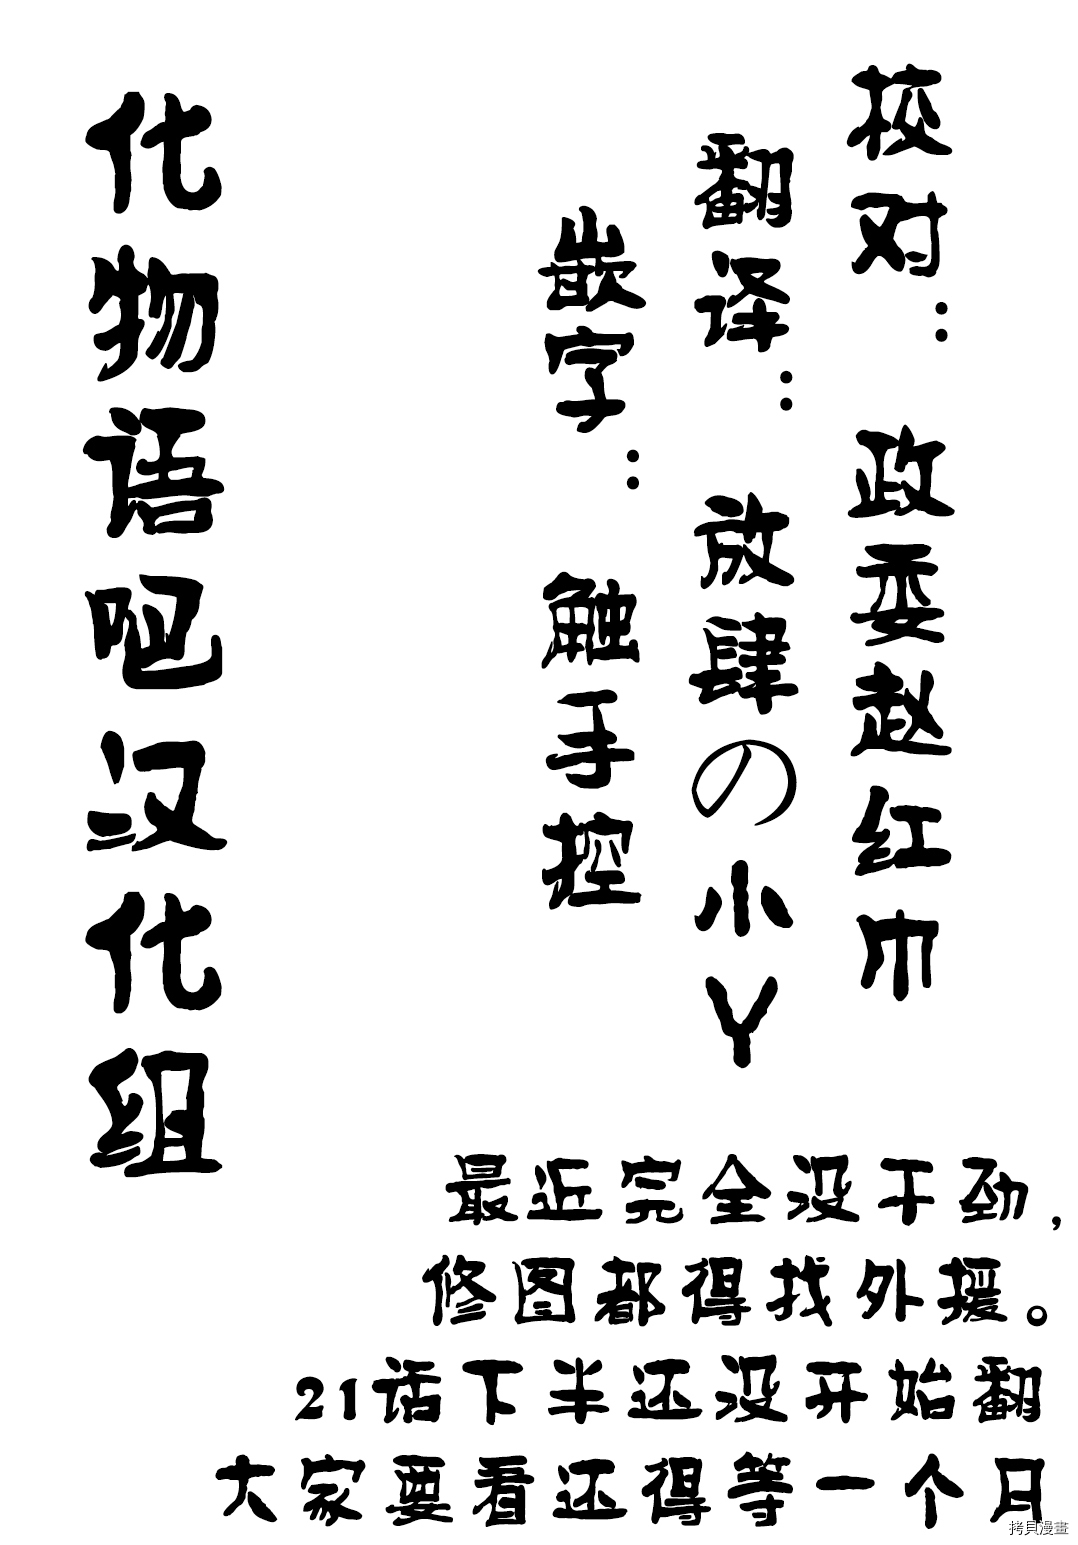 校对：政委赵红巾
翻译：放肆の小Y
嵌字：触手控
化物语吧汉化组
最近完全没干劲，
修图都得找外援。
21话下半还没开始翻
大家要看还得等一个月
拷貝漫畫